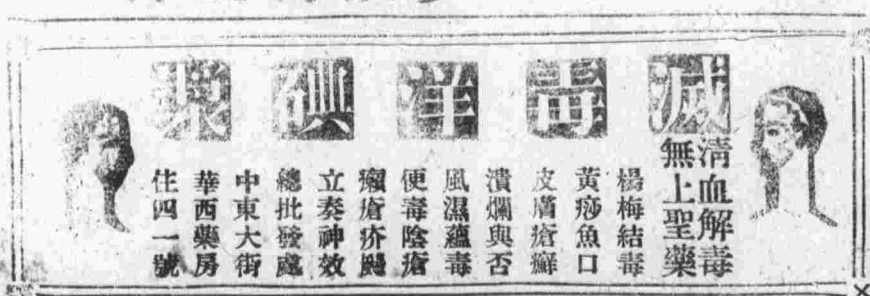 滅毒洋碘漿
清血解毒
無上聖藥
楊梅結毒
黃痧魚口
皮膚瘡癬
潰爛與否
風濕蘊毒
便毒陰瘡
癩瘡疥癘
立奏神效
總批發處
中東大街
華西藥房
住四一號